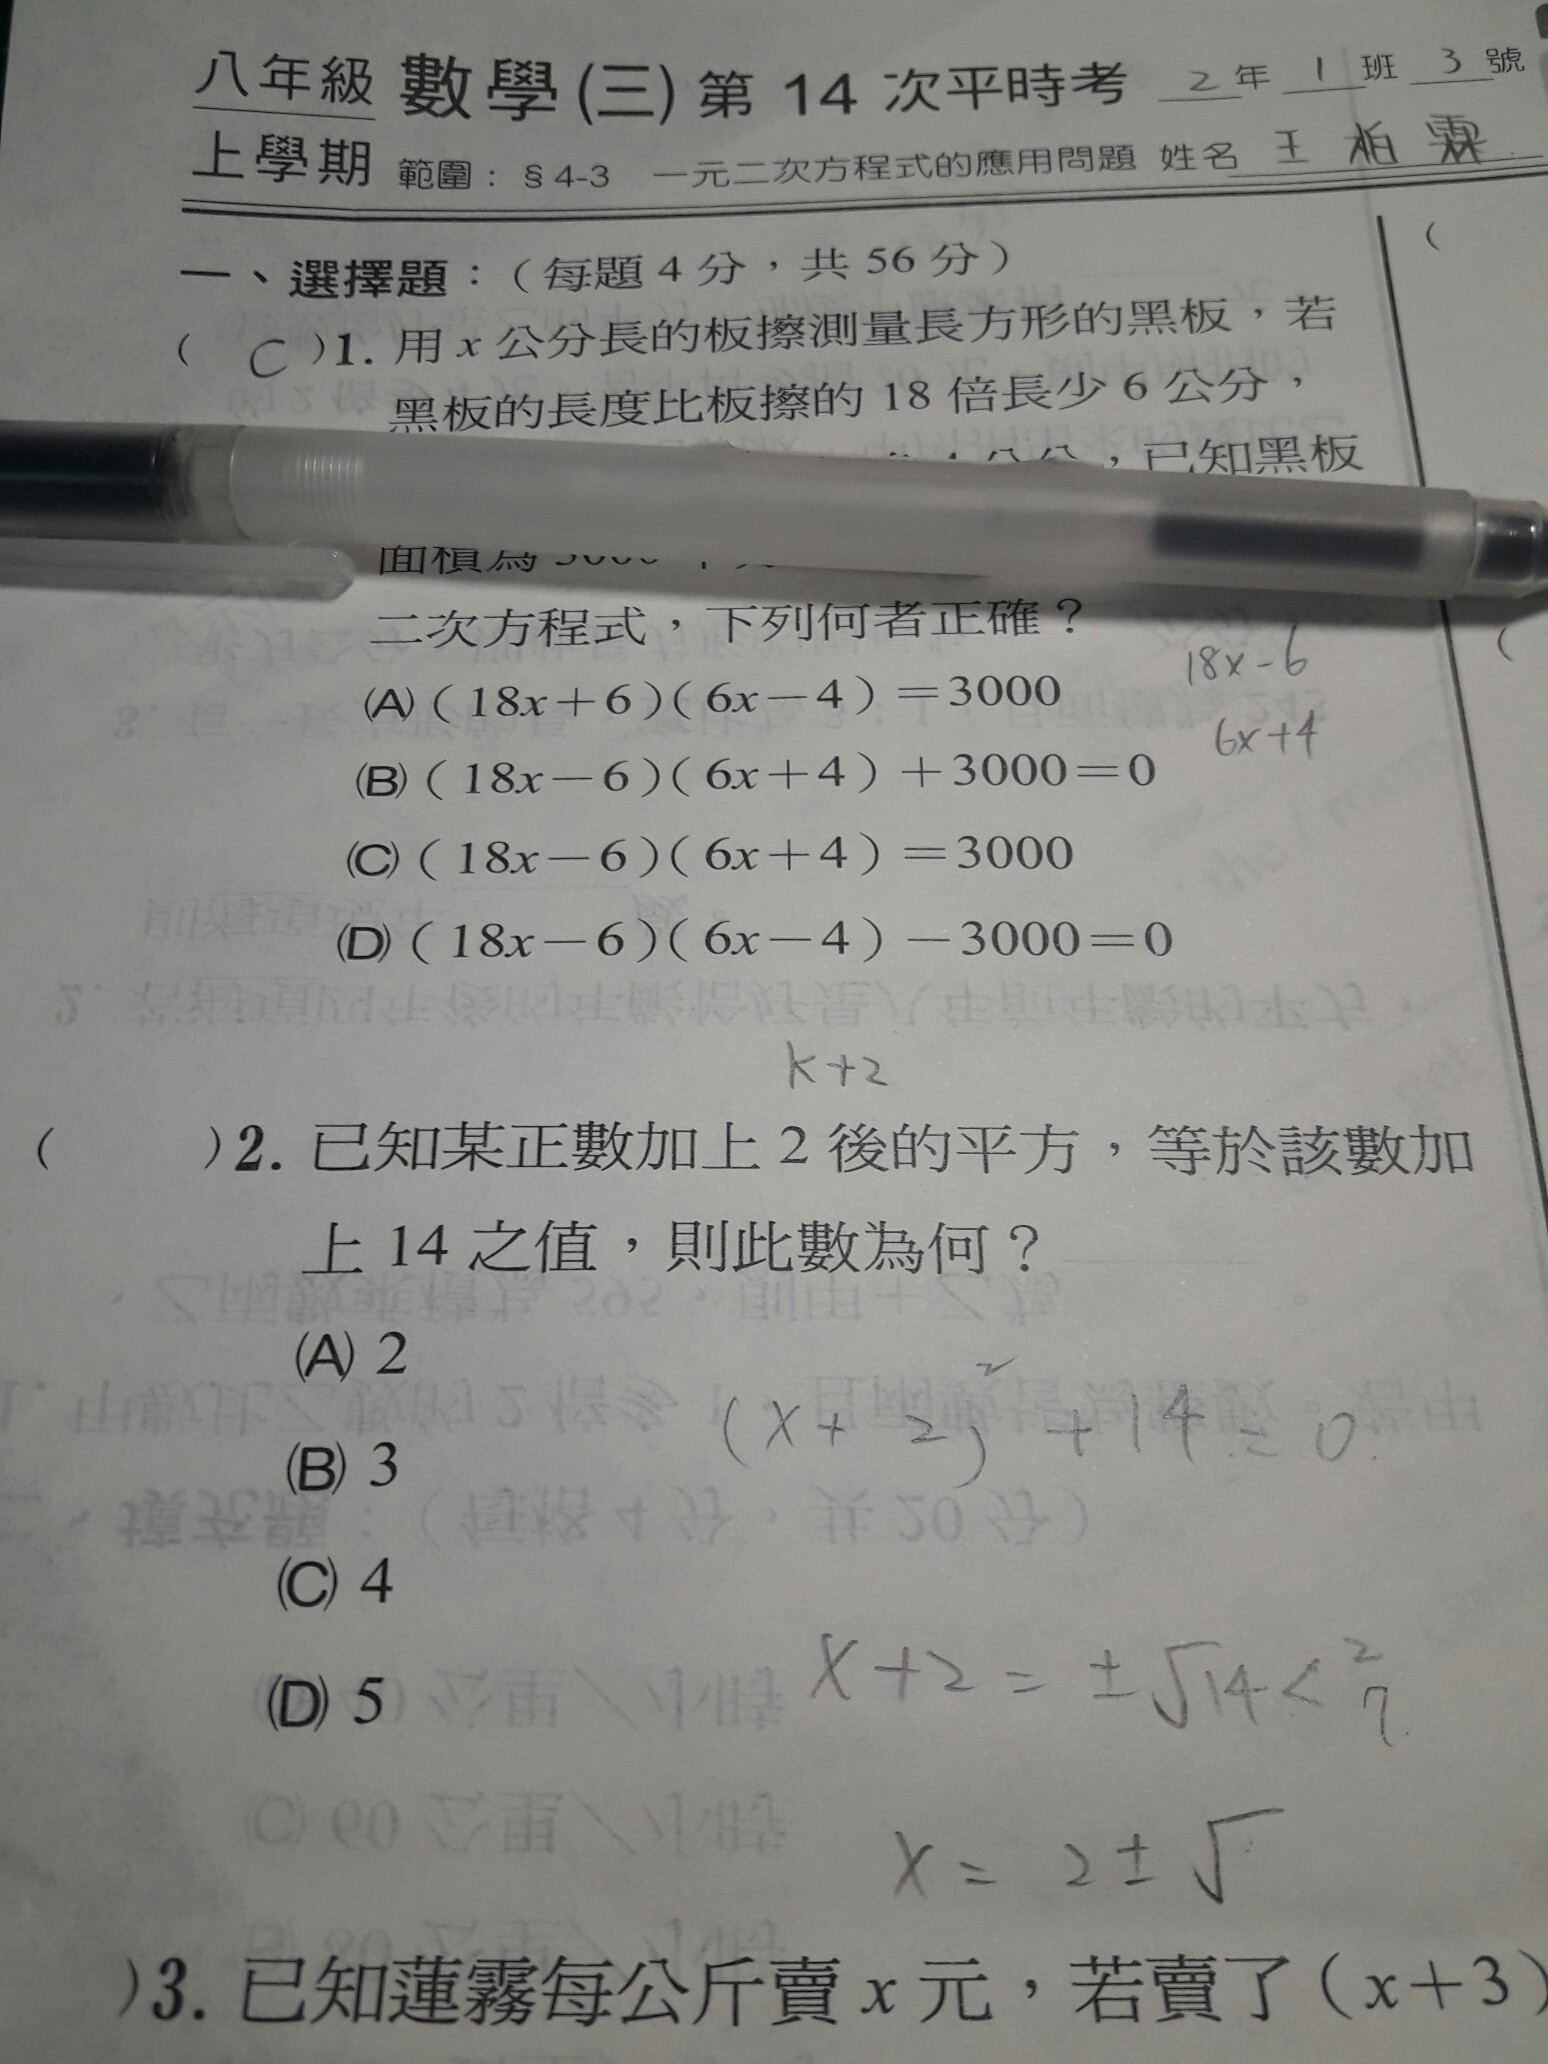 八年級 數學(三) 第 14 次平時考 2 年 1 班 3 號
上學期 範圍：§4-3 一元二次方程式的應用問題 姓名 王柏霖
一、選擇題：（每題 4 分，共 56 分）
( C )1. 用 x 公分長的板擦測量長方形的黑板，若
黑板的長度比板擦的 18 倍長少 6 公分，
，已知黑板
面積為
二次方程式，下列何者正確？
18x-6
(A)（18x＋6）（6x－4）＝3000
6x+4
(B)（18x－6）（6x＋4）＋3000＝0
(C)（18x－6）（6x＋4）＝3000
(D)（18x－6）（6x－4）－3000＝0
k+2
( )2. 已知某正數加上 2 後的平方，等於該數加
上 14 之值，則此數為何？
(A) 2
(x+2)² +14=0
(B) 3
(C) 4
x+2=±√14< 2 7
(D) 5
x= 2±√
)3. 已知蓮霧每公斤賣 x 元，若賣了（x＋3）